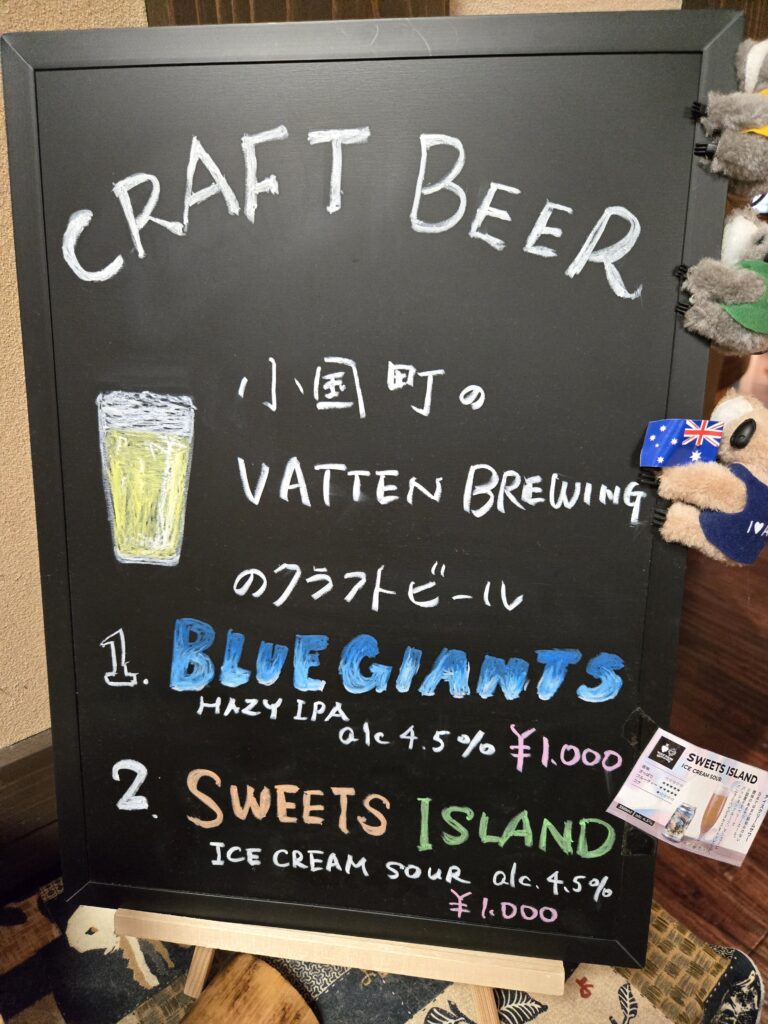 CRAFT BEER
小国町の
VATTEN BREWING
のクラフトビール
1. BLUE GIANTS
HAZY IPA
alc 4.5% ¥1.000
2. SWEETS ISLAND
ICE CREAM SOUR alc. 4.5%
¥1.000
SWEETS ISLAND
ICE CREAM SOUR
I♥A